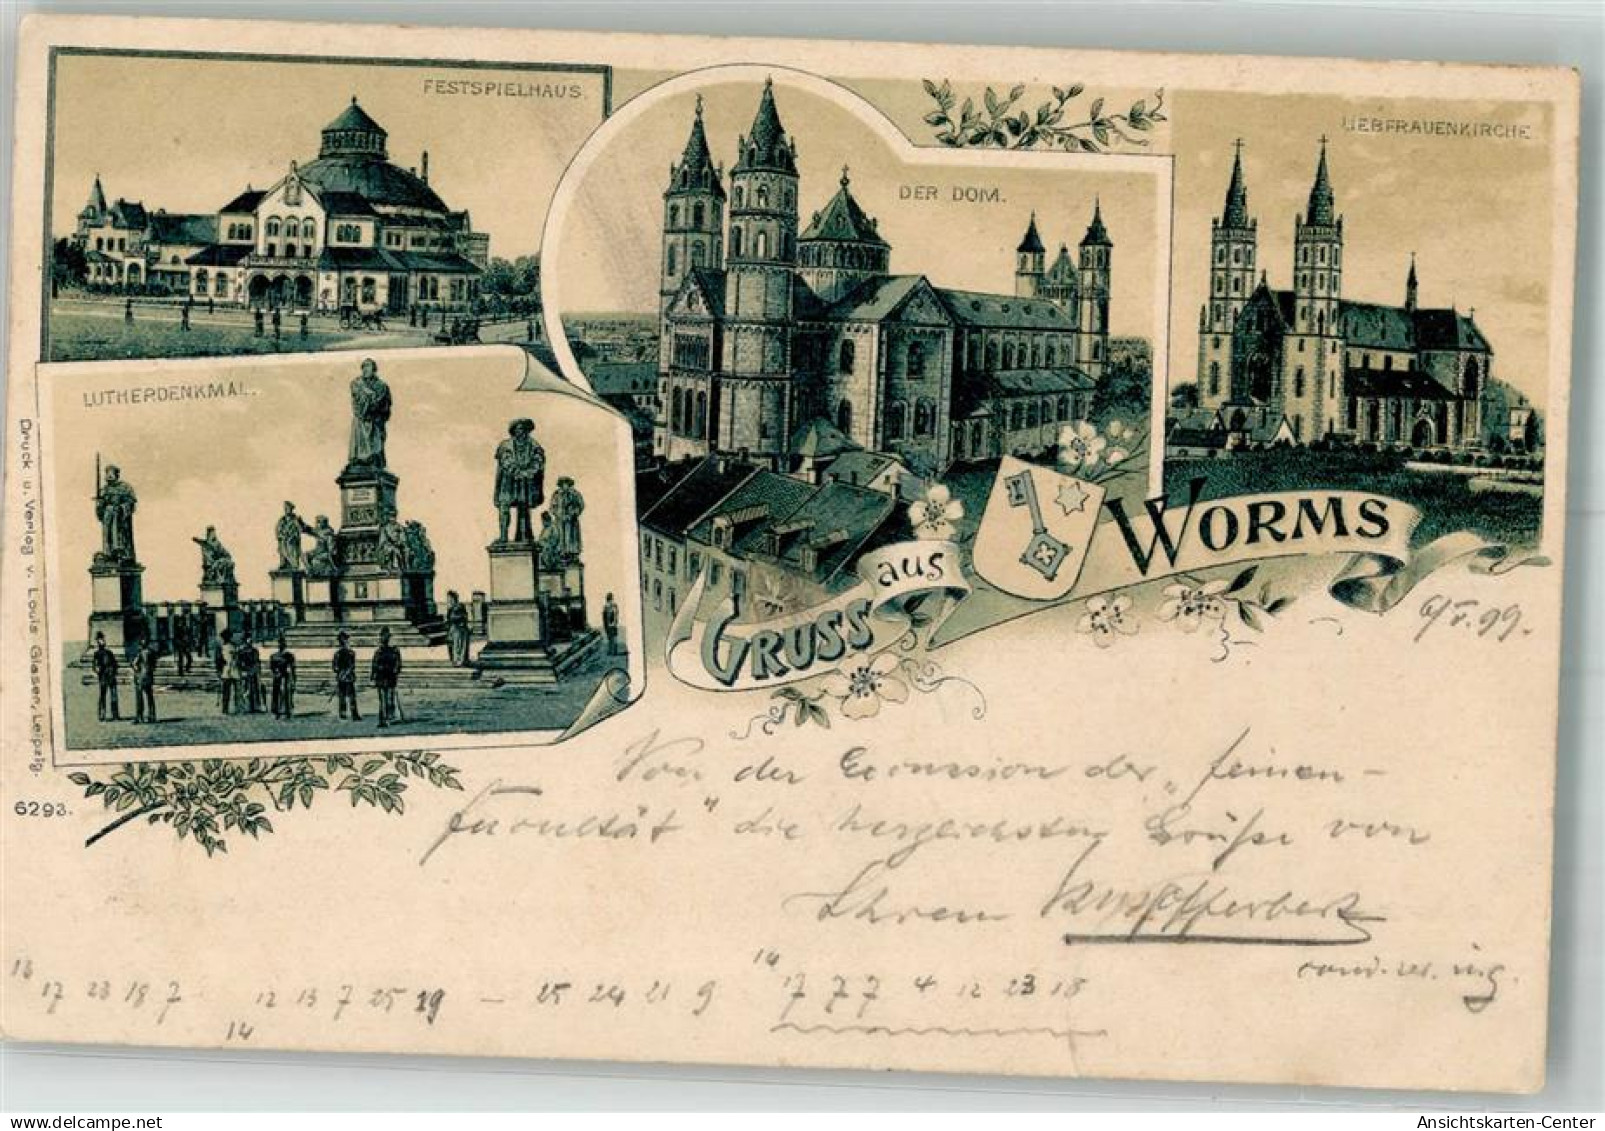 FESTSPIELHAUS.
DER DOM.
LIEBFRAUENKIRCHE
LUTHERDENKMAL.
GRUSS aus WORMS
6/V. 99.
Druck u. Verlag v. Louis Glaser, Leipzig.
6293.
Von der Excursion der „feinen-
facultät" die herzlichsten Grüße von
Ihrem
cand. ing.
16
17 23 18 7 12 13 7 25 19 — 25 24 21 9
14
14
17 7 7 4 12 23 18
AnsichtsKarten-Center
delcampe.net